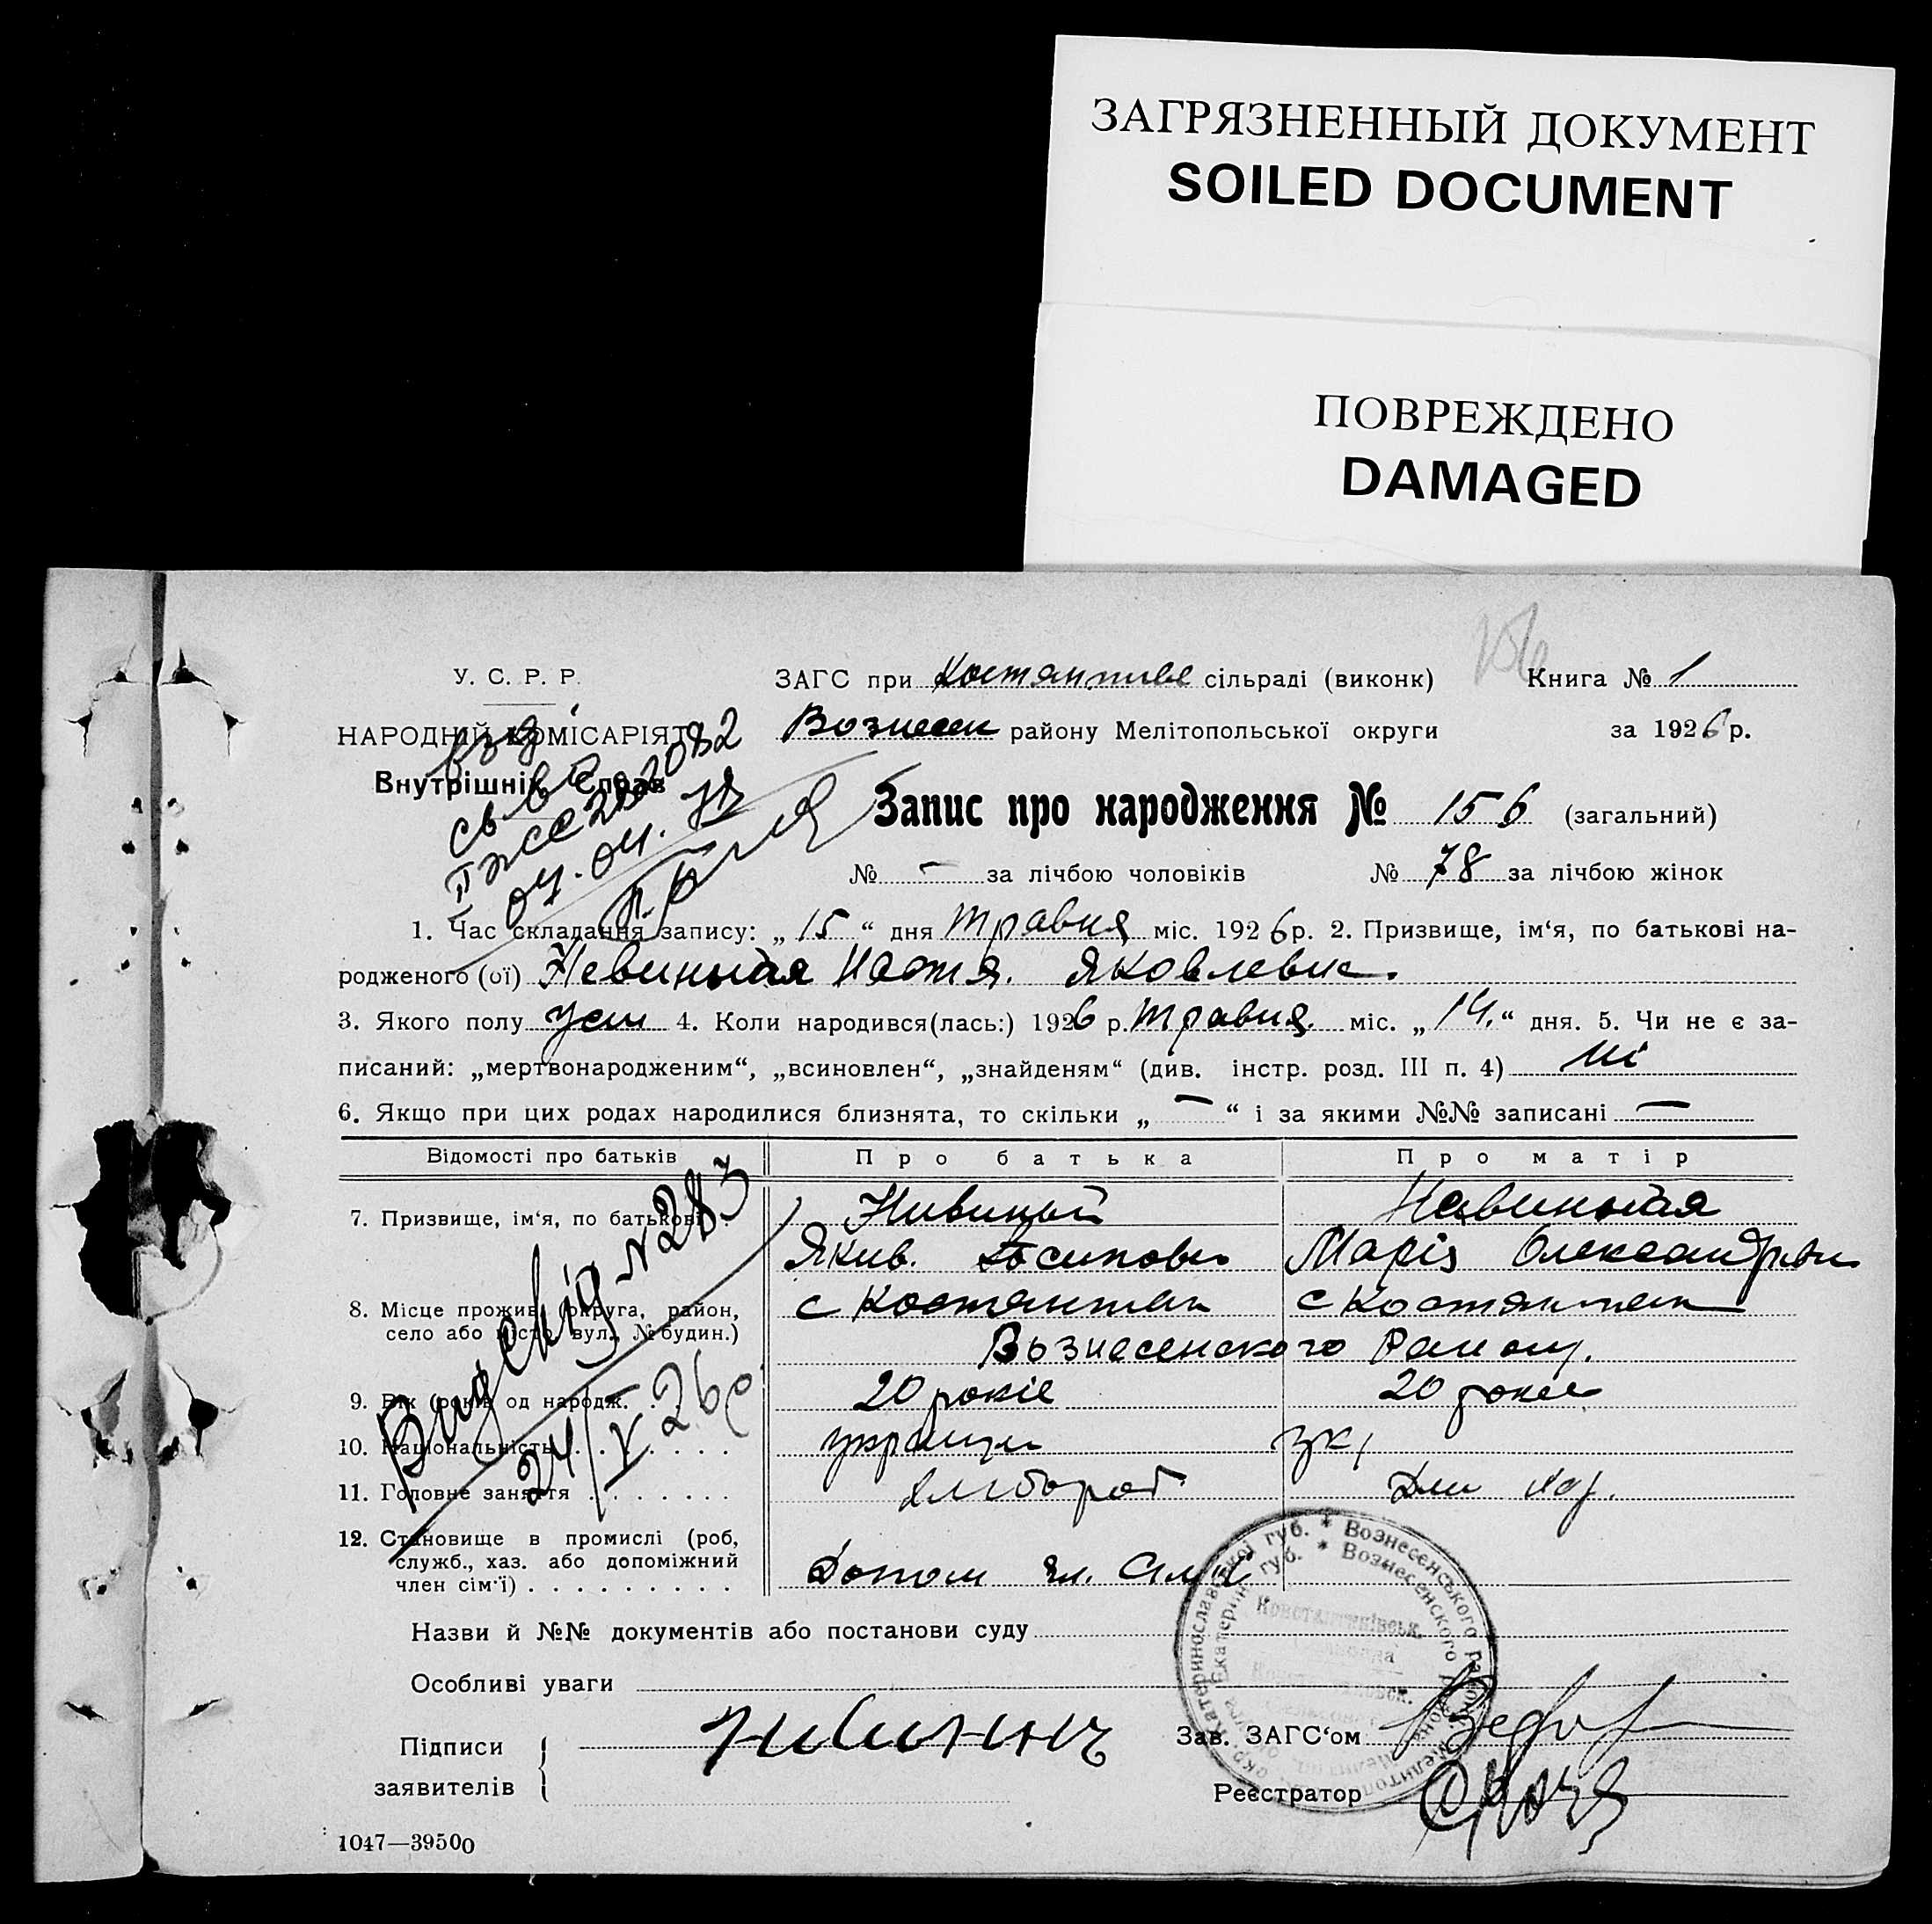 ЗАГРЯЗНЕННЫЙ ДОКУМЕНТ
SOILED DOCUMENT
ПОВРЕЖДЕНО
DAMAGED
156
У. С. Р. Р.
ЗАГС при Костянтиве сільраді (виконк) Книга № 1
НАРОДНІЙ КОМІСАРІЯТ Вознесен району Мелітопольської округи за 1926 р.
Внутрішніх Справ
07.04.
Запис про народження № 156 (загальний)
№ - за лічбою чоловіків № 78 за лічбою жінок
1. Час складання запису: „ 15 “ дня травня міс. 1926 р. 2. Призвище, ім‘я, по батькові на-
родженого (ої) Невиньная Настя. Яковлевна
3. Якого полу жен 4. Коли народився(лась:) 1926 р. травня міс. „ 14. “ дня. 5. Чи не є за-
писаний: „мертвонародженим“, „всиновлен“, „знайденям“ (див. інстр. розд. III п. 4) ні
6. Якщо при цих родах народилися близнята, то скільки „ — “ і за якими №№ записані —
Відомості про батьків Про батька Про матір
7. Призвище, ім‘я, по батькові Нивиный Невиньная
Якив. Осипович Марія Олександрівн
8. Місце прожив. (округа, район, с Костянтин с Костянтин
село або місто, вул. № будин.) Вознесенского Району.
9. Вік (років од народж. 20 років 20 років
10. Національність украинц ук,
11. Головне заняття хлибороб Дом хаз.
12. Становище в промислі (роб,
служб., хаз. або допоміжний
член сім‘ї) Допом чл. Сімі
Видсвід № 283
24/V 26 р
Назви й №№ документів або постанови суду
Особливі уваги
Підписи
заявителів
Зав. ЗАГС‘ом
Реєстратор
Катеринославської губ. * Вознесенського району Мелітопол. окр.
Екатерин. губ. * Вознесенского района
Константинівськ.
1047—39500